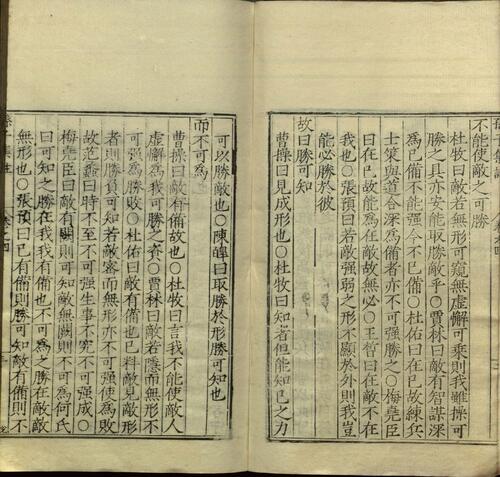 不能使敵之可勝
杜牧曰敵若無形可窺無虛懈可乘則我雖操可
勝之具亦安能取勝敵乎○賈林曰敵有智謀深
爲己備不能強令不己備○杜佑曰在己故練兵
士策與道合深爲備者亦不可強勝之○梅堯臣
曰在己故能爲在敵故無必○王晳曰在敵不在
我也○張預曰若敵强弱之形不顯於外則我豈
能必勝於彼
故曰勝可知
曹操曰見成形也○杜牧曰知者但能知己之力
可以勝敵也○陳皥曰取勝於形勝可知也
而不可爲
曹操曰敵有備故也○杜牧曰言我不能使敵人
虛懈爲我可勝之資○賈林曰敵若隱而無形不
可强爲勝敗○杜佑曰敵有備也已料敵見敵形
者則勝負可知若敵密而無形亦不可强使爲敗
故范蠡曰時不至不可强生事不究不可强成○
梅堯臣曰敵有闕則可知敵無闕則不可爲何氏
曰可知之勝在我我有備也不可爲之勝在敵敵
無形也○張預曰己有備則勝可知敵有備則不